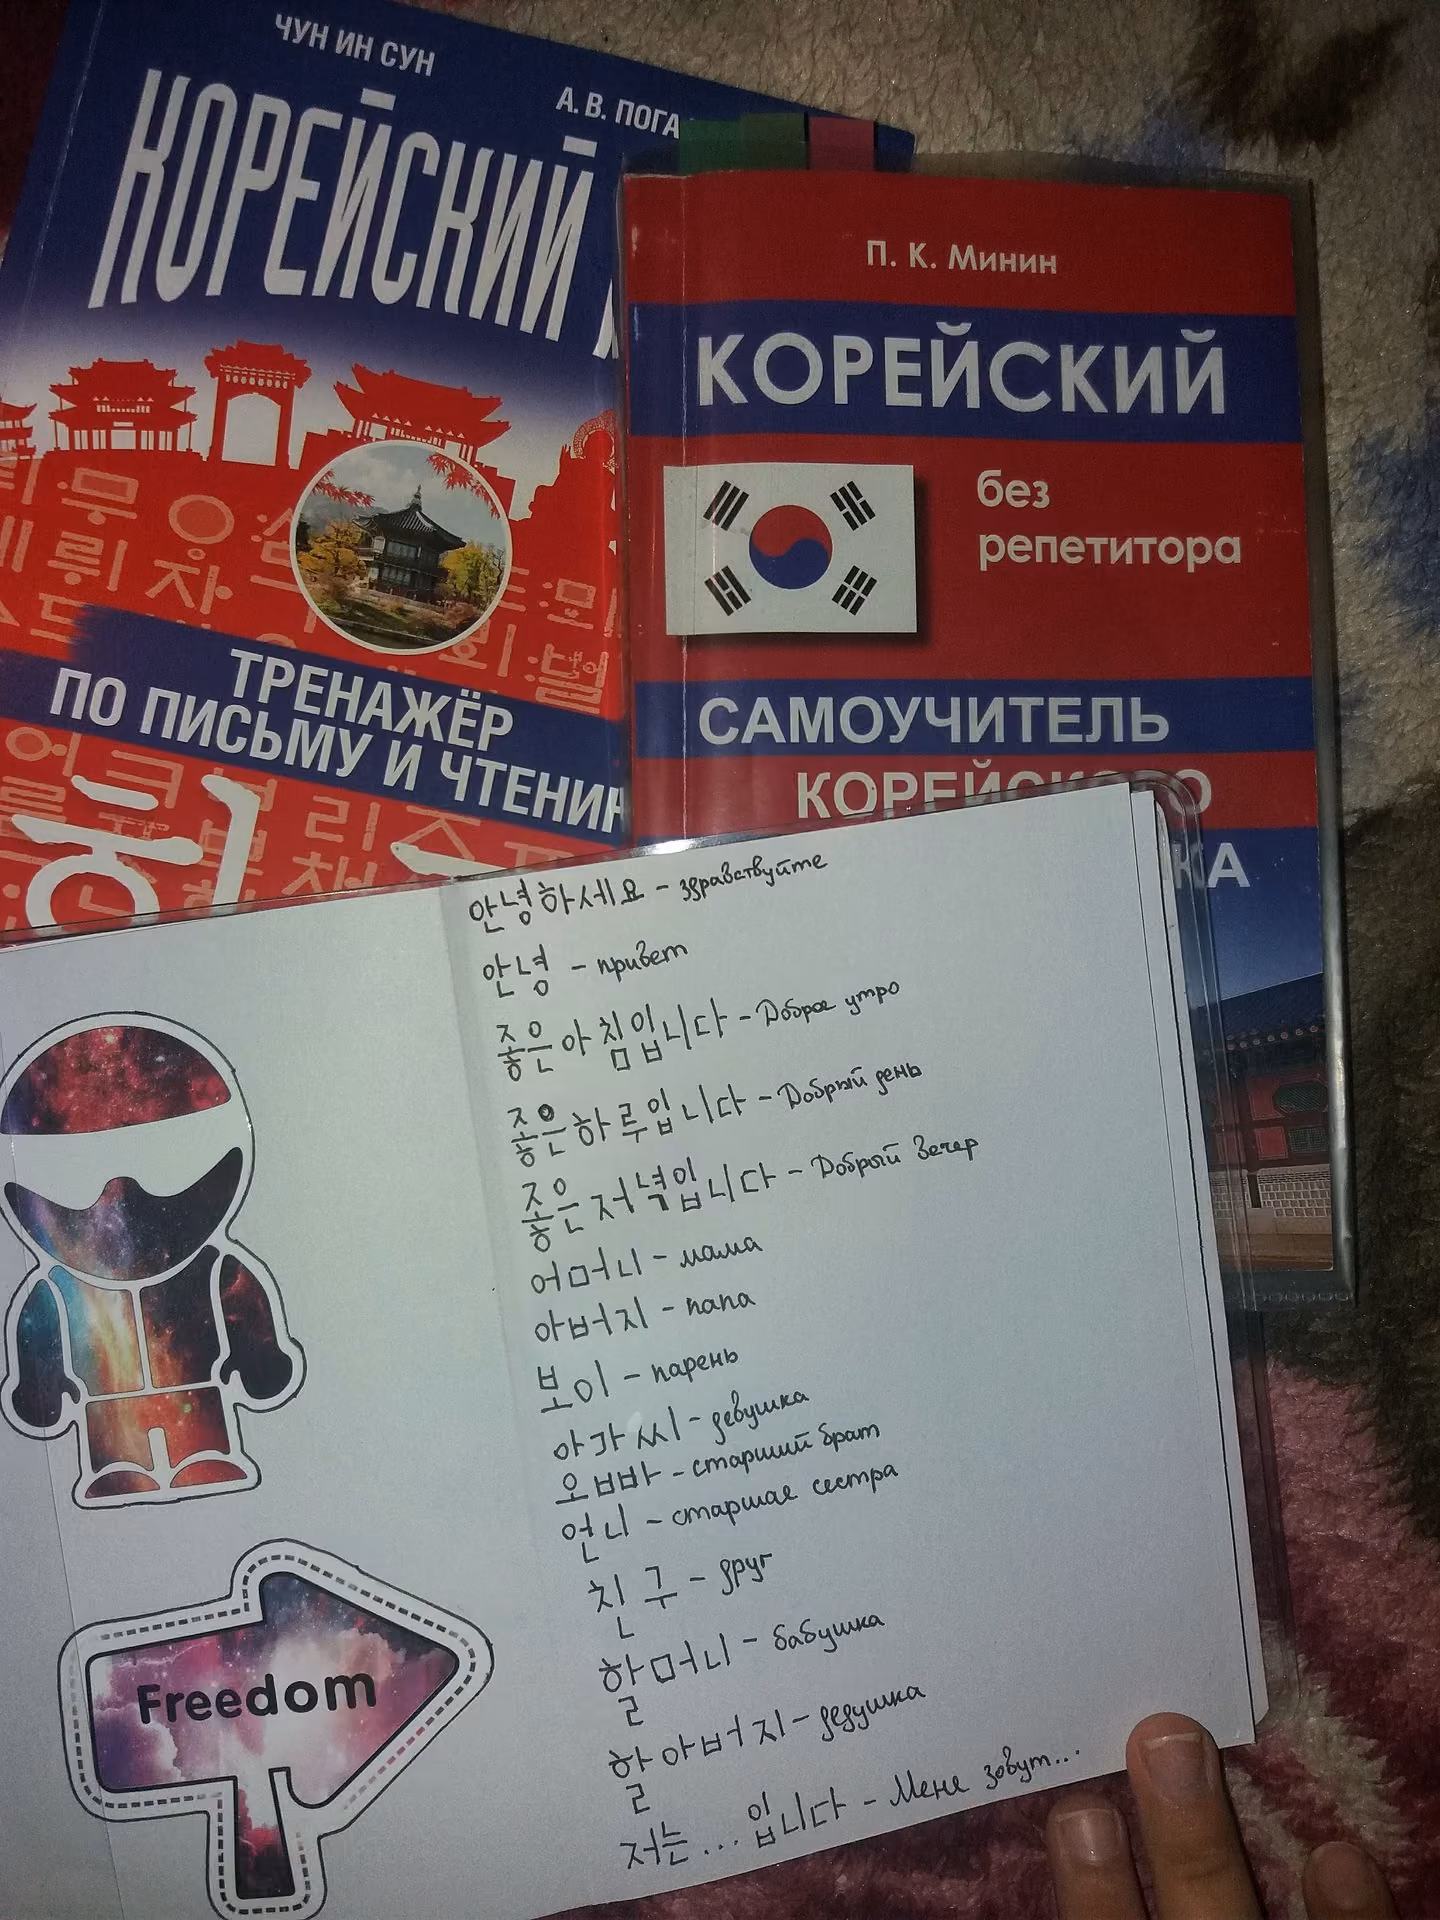 ЧУН ИН СУН
А. В. ПОГА
КОРЕЙСКИЙ
ТРЕНАЖЁР
ПО ПИСЬМУ И ЧТЕНИ
П. К. Минин
КОРЕЙСКИЙ
без
репетитора
САМОУЧИТЕЛЬ
КОРЕЙСКОГО
КА
안녕하세요 - здравствуйте
안녕 - привет
좋은 아침입니다 - Доброе утро
좋은 하루입니다 - Добрый день
좋은 저녁입니다 - Добрый вечер
어머니 - мама
아버지 - папа
보이 - парень
아가씨 - девушка
오빠 - старший брат
언니 - старшая сестра
친구 - друг
할머니 - бабушка
할아버지 - дедушка
저는... 입니다 - Меня зовут...
Freedom